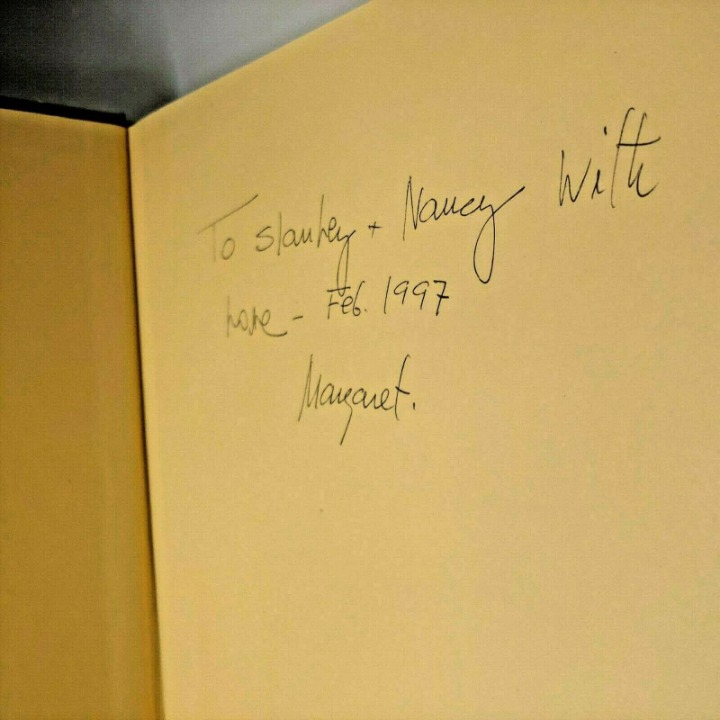 To Stanley + Nancy With
love - Feb. 1997
Margaret.